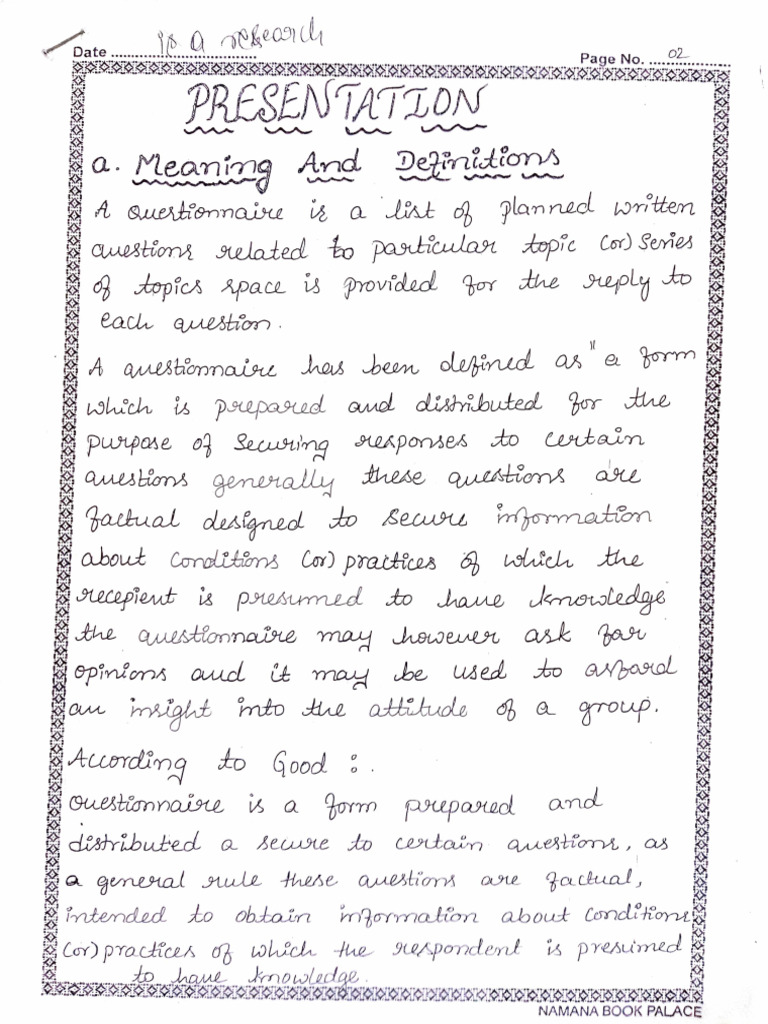 is a research
Date ........................................
Page No. 02
PRESENTATION
a. Meaning And Definitions
A questionnaire is a list of planned written
questions related to particular topic (or) series
of topics space is provided for the reply to
each question.
A questionnaire has been defined as " a form
which is prepared and distributed for the
purpose of securing responses to certain
questions generally these questions are
factual designed to secure information
about conditions (or) practices of which the
recepient is presumed to have knowledge
the questionnaire may however ask for
opinions and it may be used to asford
an insight into the attitude of a group.
According to Good :.
Questionnaire is a form prepared and
distributed a secure to certain questions, as
a general rule these questions are factual,
intended to obtain information about conditions
(or) practices of which the respondent is presumed
to have knowledge.
NAMANA BOOK PALACE